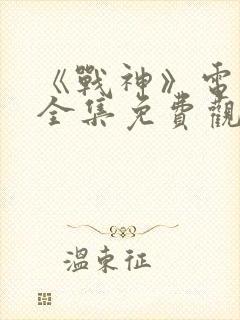 《戰神》電
全集免費觀
溫東征